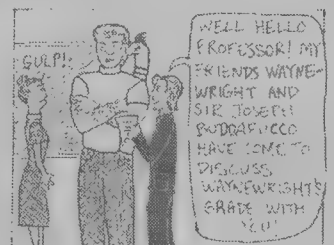 GULP!
WELL HELLO
PROFESSOR! MY
FRIENDS WAYNE-
WRIGHT AND
SIR JOSEPH
BUDDAFUCCO
HAVE COME TO
DISCUSS
WAYNEWRIGHT'S
GRADE WITH
YOU!